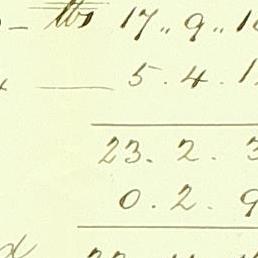 lbs 17 " 9 " 1
5 . 4 . 1
23 . 2 . 3
0 . 2 . 9